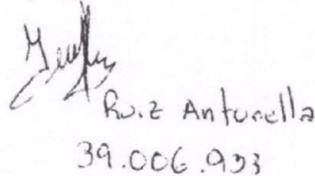 Ruiz Antonella
39.006.933